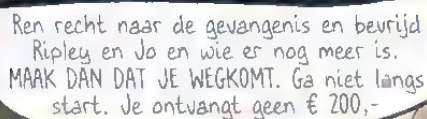 Ren recht naar de gevangenis en bevrijd
Ripley en Jo en wie er nog meer is.
MAAK DAN DAT JE WEGKOMT. Ga niet langs
start. Je ontvangt geen € 200,-